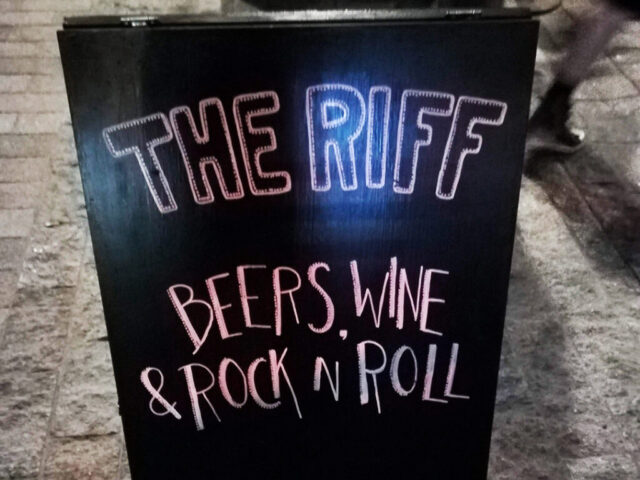 THE RIFF
BEERS, WINE
& ROCK N ROLL